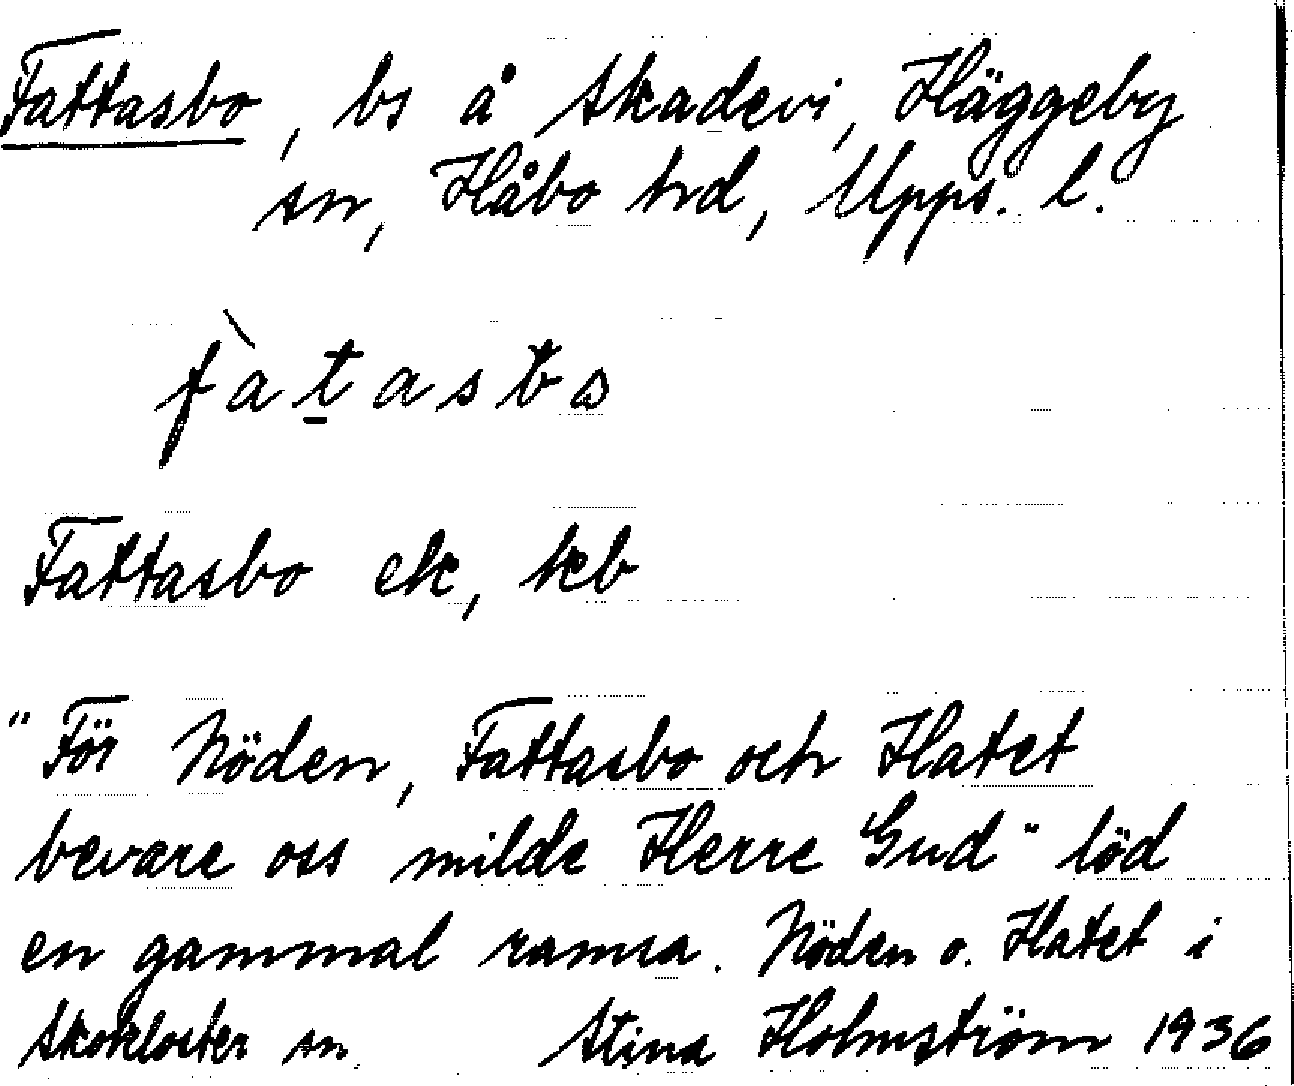 Fattasbo, bs å Skadevi, Häggeby
sn, Håbo hd, Upps. l.
fàt̲asbɷ
Fattasbo ek, kb
"För Nöden, Fattasbo och Hatet
bevare oss milde Herre Gud" löd
en gammal ramsa. Nöden o. Hatet i
Skokloster sn. Stina Holmström 1936